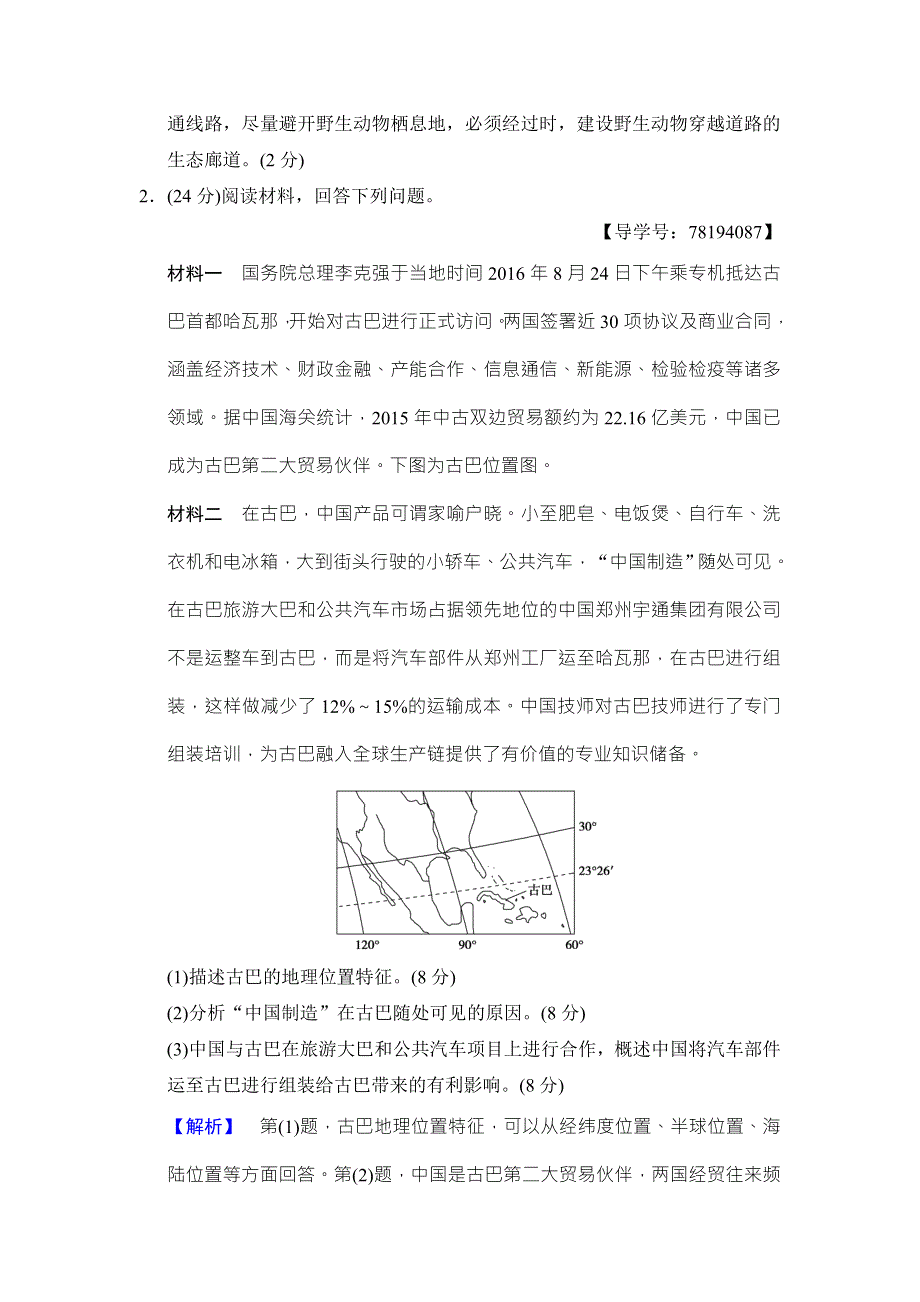 通线路，尽量避开野生动物栖息地，必须经过时，建设野生动物穿越道路的
生态廊道。(2 分)
2．(24 分)阅读材料，回答下列问题。
【导学号：78194087】
材料一　国务院总理李克强于当地时间 2016 年 8 月 24 日下午乘专机抵达古
巴首都哈瓦那，开始对古巴进行正式访问。两国签署近 30 项协议及商业合同，
涵盖经济技术、财政金融、产能合作、信息通信、新能源、检验检疫等诸多
领域。据中国海关统计，2015 年中古双边贸易额约为 22.16 亿美元，中国已
成为古巴第二大贸易伙伴。下图为古巴位置图。
材料二　在古巴，中国产品可谓家喻户晓。小至肥皂、电饭煲、自行车、洗
衣机和电冰箱，大到街头行驶的小轿车、公共汽车，“中国制造”随处可见。
在古巴旅游大巴和公共汽车市场占据领先地位的中国郑州宇通集团有限公司
不是运整车到古巴，而是将汽车部件从郑州工厂运至哈瓦那，在古巴进行组
装，这样做减少了 12%～15%的运输成本。中国技师对古巴技师进行了专门
组装培训，为古巴融入全球生产链提供了有价值的专业知识储备。
30°
23°26′
古巴
120° 90° 60°
(1)描述古巴的地理位置特征。(8 分)
(2)分析“中国制造”在古巴随处可见的原因。(8 分)
(3)中国与古巴在旅游大巴和公共汽车项目上进行合作，概述中国将汽车部件
运至古巴进行组装给古巴带来的有利影响。(8 分)
【解析】　第(1)题，古巴地理位置特征，可以从经纬度位置、半球位置、海
陆位置等方面回答。第(2)题，中国是古巴第二大贸易伙伴，两国经贸往来频